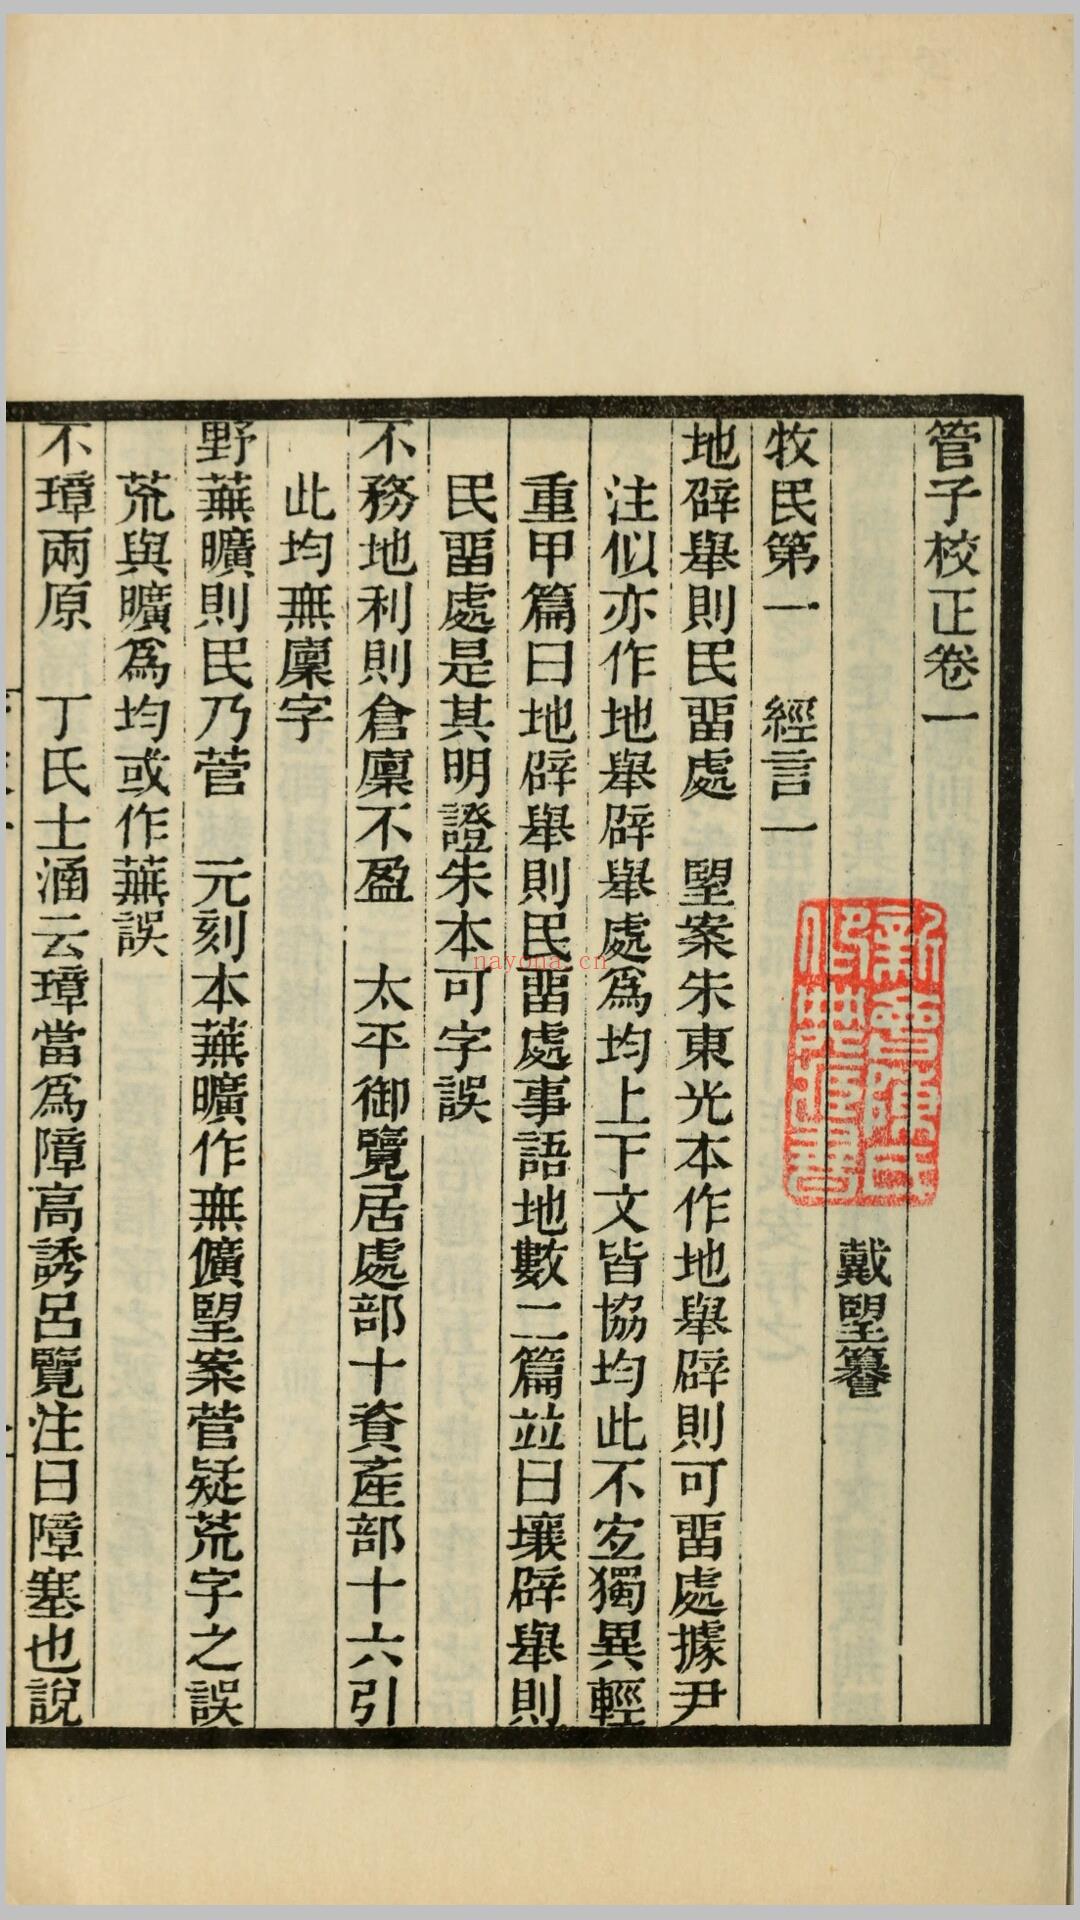 管子校正卷一
戴朢纂
牧民第一　經言一
地辟舉則民畱處　朢案朱東光本作地舉辟則可畱處據尹
注似亦作地舉辟舉處爲均上下文皆協均此不宐獨異輕
重甲篇曰地辟舉則民畱處事語地數二篇竝曰壤辟舉則
民畱處是其明證朱本可字誤
不務地利則倉廩不盈　太平御覽居處部十資產部十六引
此均無廩字
野蕪曠則民乃菅　元刻本蕪曠作無儣朢案菅疑荒字之誤
荒與曠爲均或作蕪誤
不璋兩原　丁氏士涵云璋當爲障高誘呂覽注曰障塞也說
新會陳氏
藏書
nayona.cn